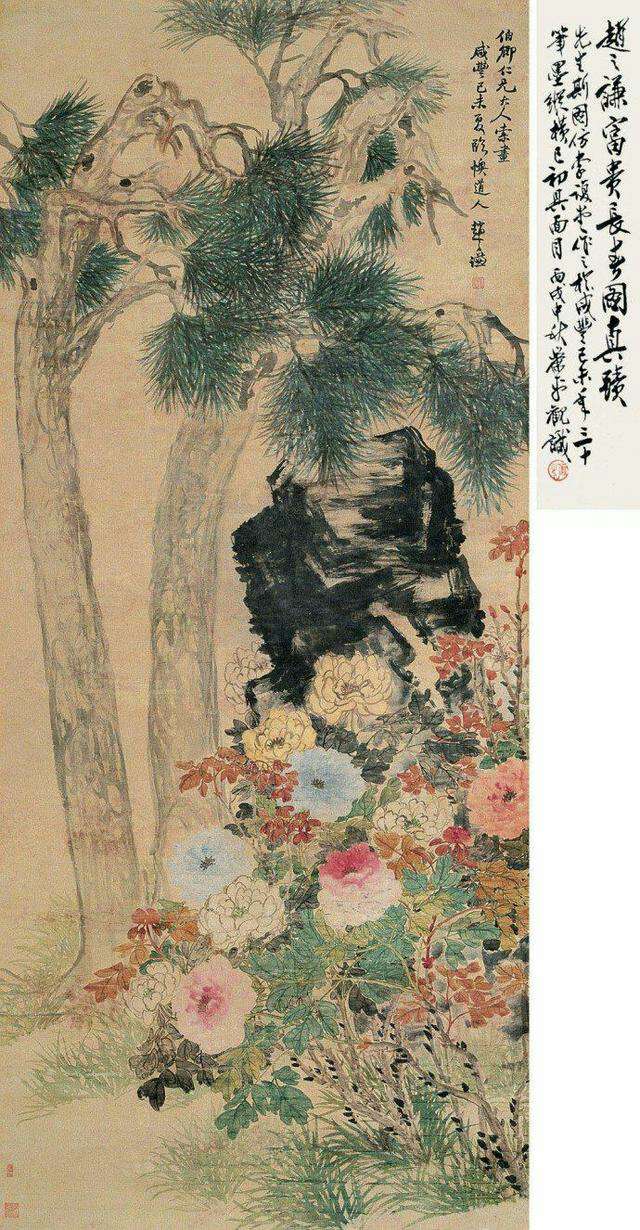 趙之謙富貴長春圖真蹟
先生斯圖仿李復堂作之於咸豐己未年三十
筆墨縱橫已初具面目 丙戌中秋 觀識
伯卿仁兄大人索畫
咸豐己未夏 道人 趙之謙